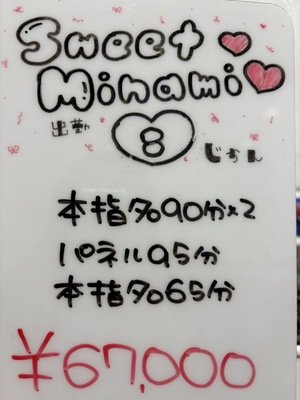 Sweet
Minami
出勤 8 じかん
本指名90分×2
パネル95分
本指名65分
¥67,000